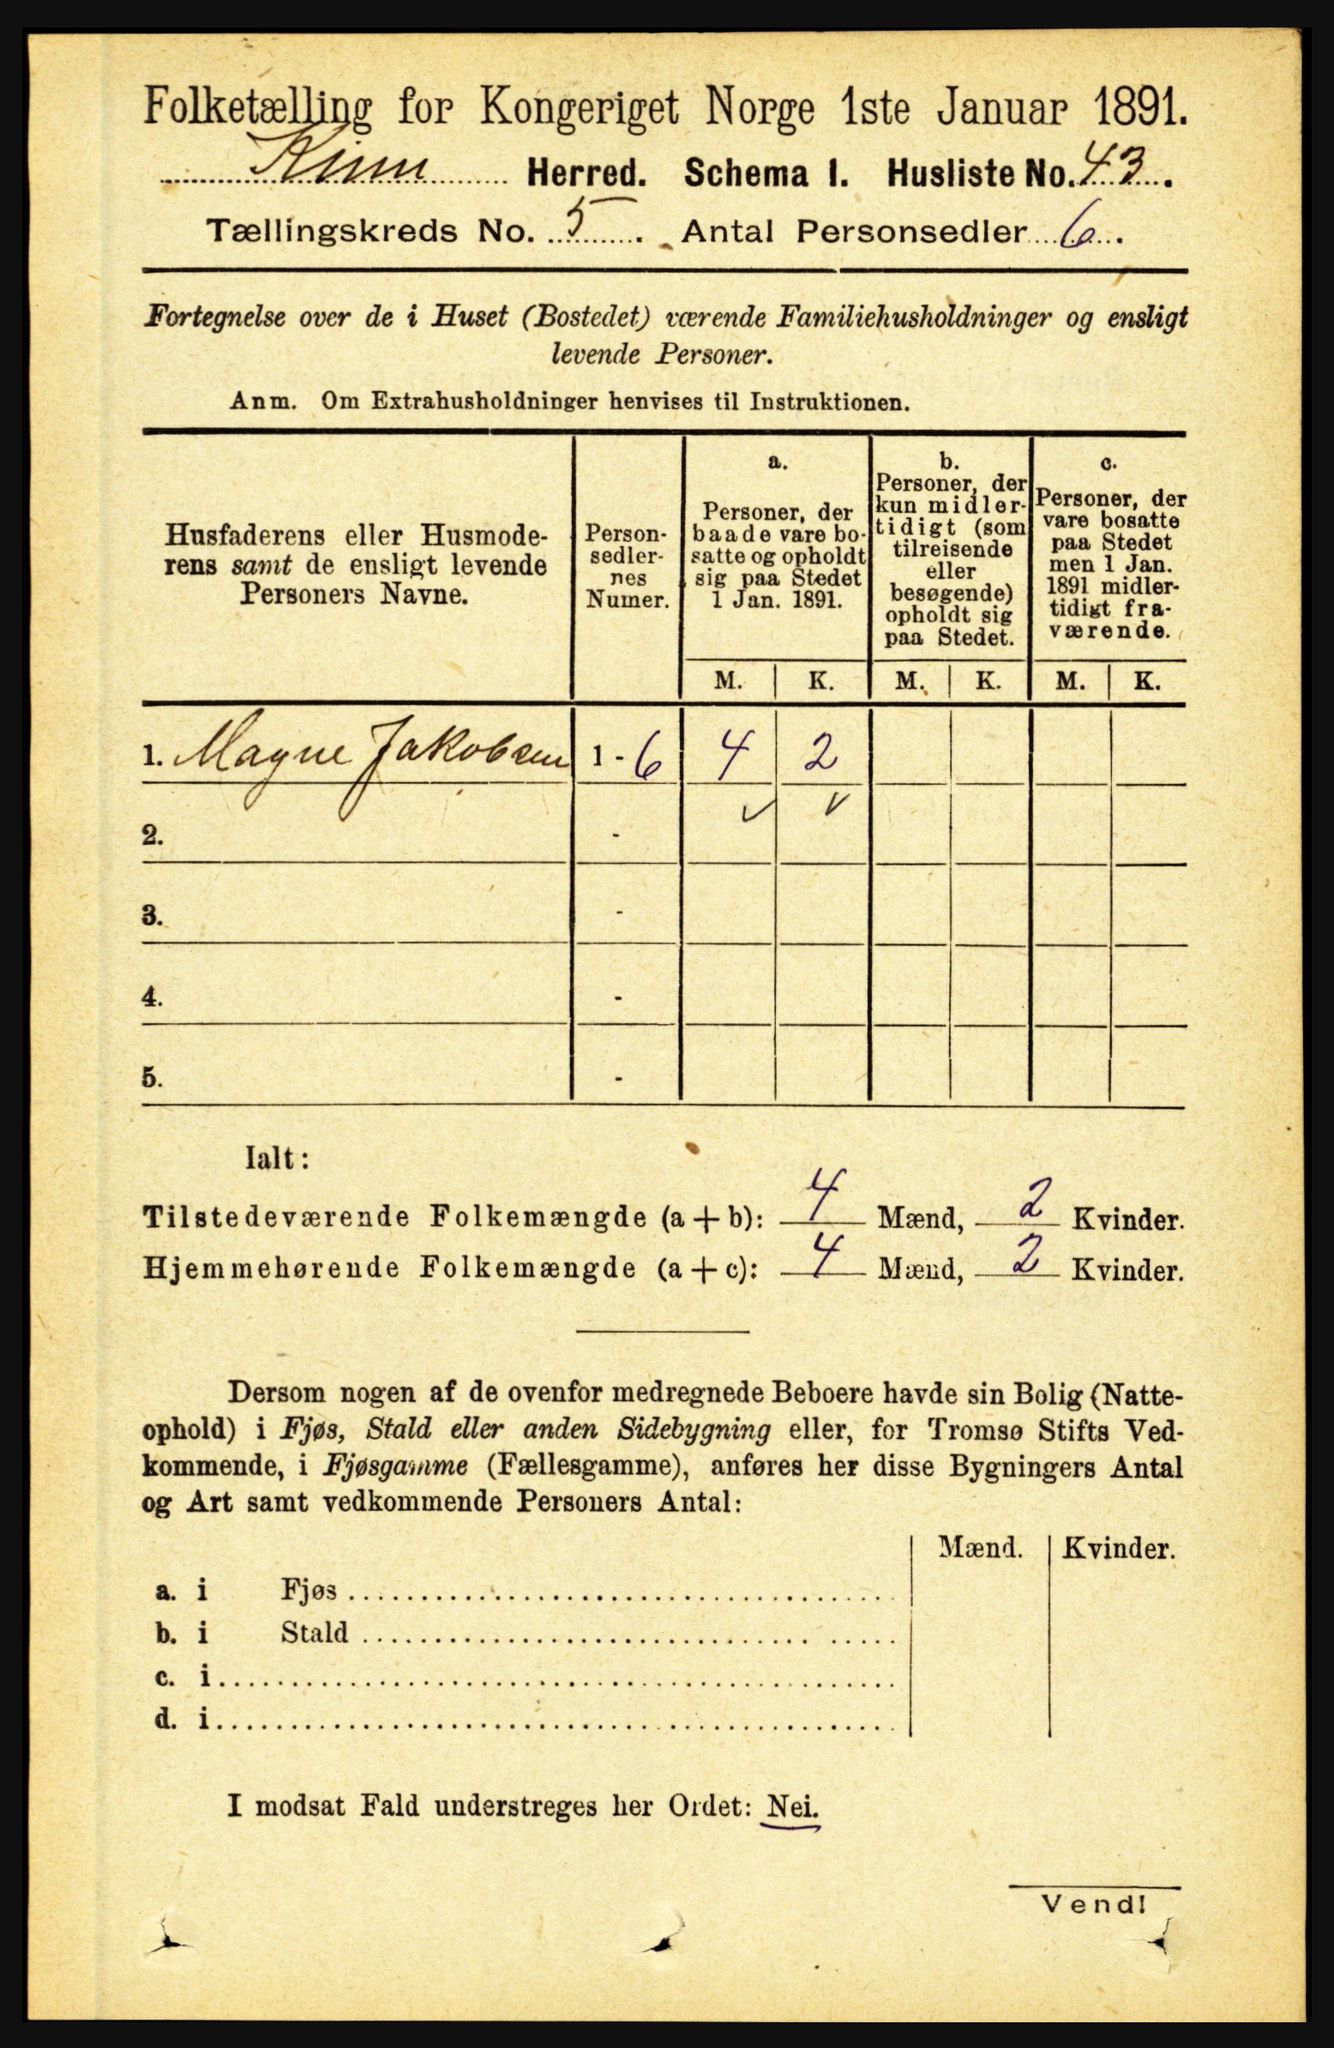 Folketælling for Kongeriget Norge 1ste Januar 1891.
Kinn Herred. Schema 1. Husliste No. 43.
Tællingskreds No. 5. Antal Personsedler 6.
Fortegnelse over de i Huset (Bostedet) værende Familiehusholdninger og ensligt
levende Personer.
Anm. Om Extrahusholdninger henvises til Instruktionen.
Husfaderens eller Husmode-
rens samt de ensligt levende
Personers Navne.
Person-
sedler-
nes
Numer.
a.
Personer, der
baade vare bo-
satte og opholdt
sig paa Stedet
1 Jan. 1891.
b.
Personer, der
kun midler-
tidigt (som
tilreisende
eller
besøgende)
opholdt sig
paa Stedet.
c.
Personer, der
vare bosatte
paa Stedet
men 1 Jan.
1891 midler-
tidigt fra-
værende.
M. K. M. K. M. K.
1. Magne Jakobsen 1 - 6 4 2
2. -
3. -
4. -
5. -
Ialt:
Tilstedeværende Folkemængde (a+b): 4 Mænd, 2 Kvinder.
Hjemmehørende Folkemængde (a+c): 4 Mænd, 2 Kvinder.
Dersom nogen af de ovenfor medregnede Beboere havde sin Bolig (Natte-
ophold) i Fjøs, Stald eller anden Sidebygning eller, for Tromsø Stifts Ved-
kommende, i Fjøsgamme (Fællesgamme), anføres her disse Bygningers Antal
og Art samt vedkommende Personers Antal:
Mænd. Kvinder.
a. i Fjøs
b. i Stald
c. i
d. i
I modsat Fald understreges her Ordet: Nei.
Vend!